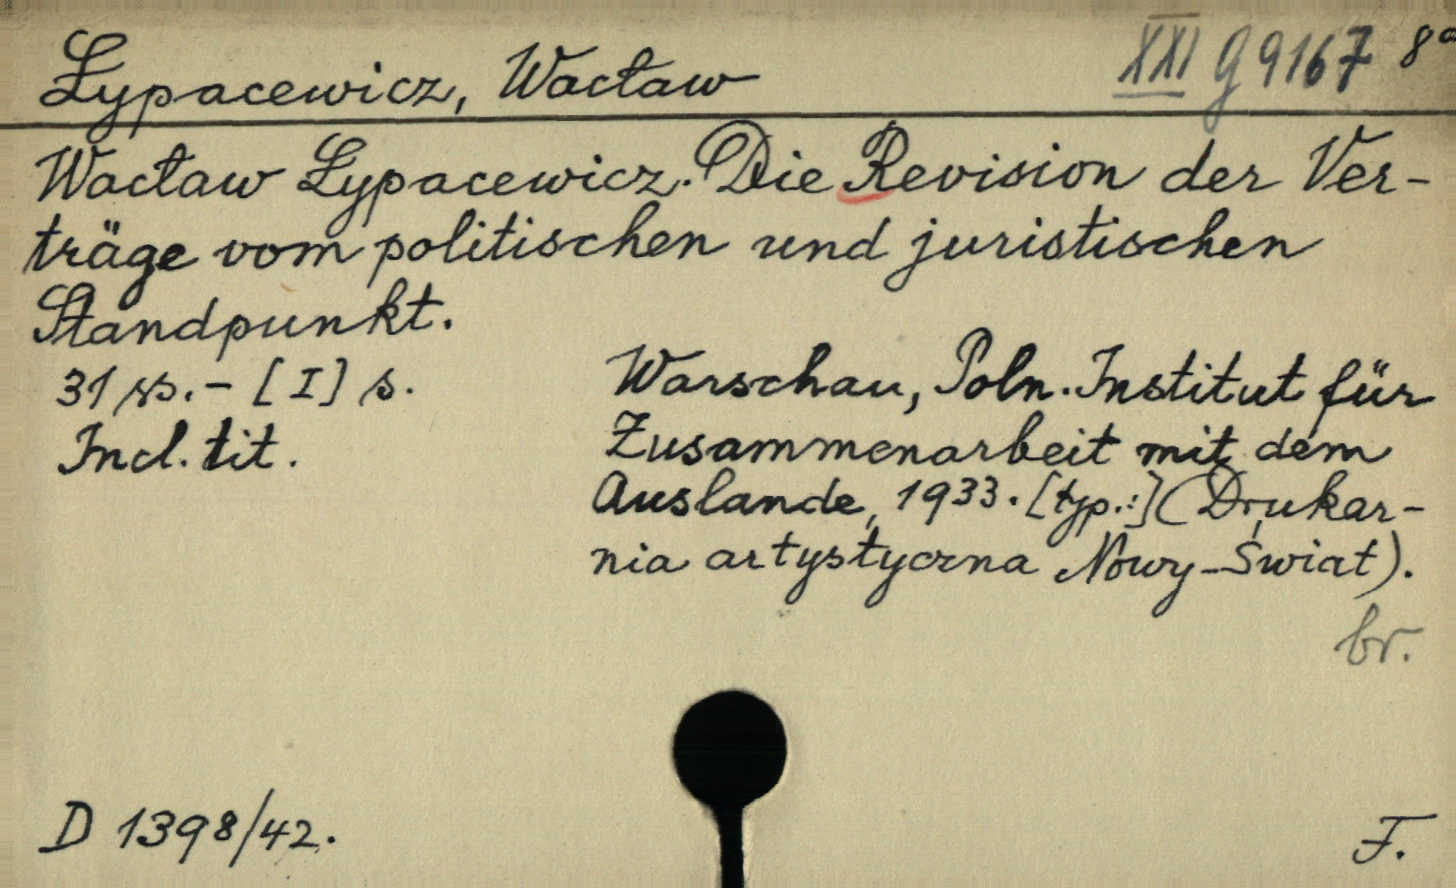 Łypacewicz, Wacław XXI G 9167 8°
Wacław Łypacewicz. Die Revision der Ver-
träge vom politischen und juristischen
Standpunkt.
31 ss. - [I] s.
Incl. tit.
Warschau, Poln. Institut für
Zusammenarbeit mit dem
Auslande, 1933. [typ.:] (Drukar-
nia artystyczna Nowy-Świat).
br.
D 1398/42.
F.